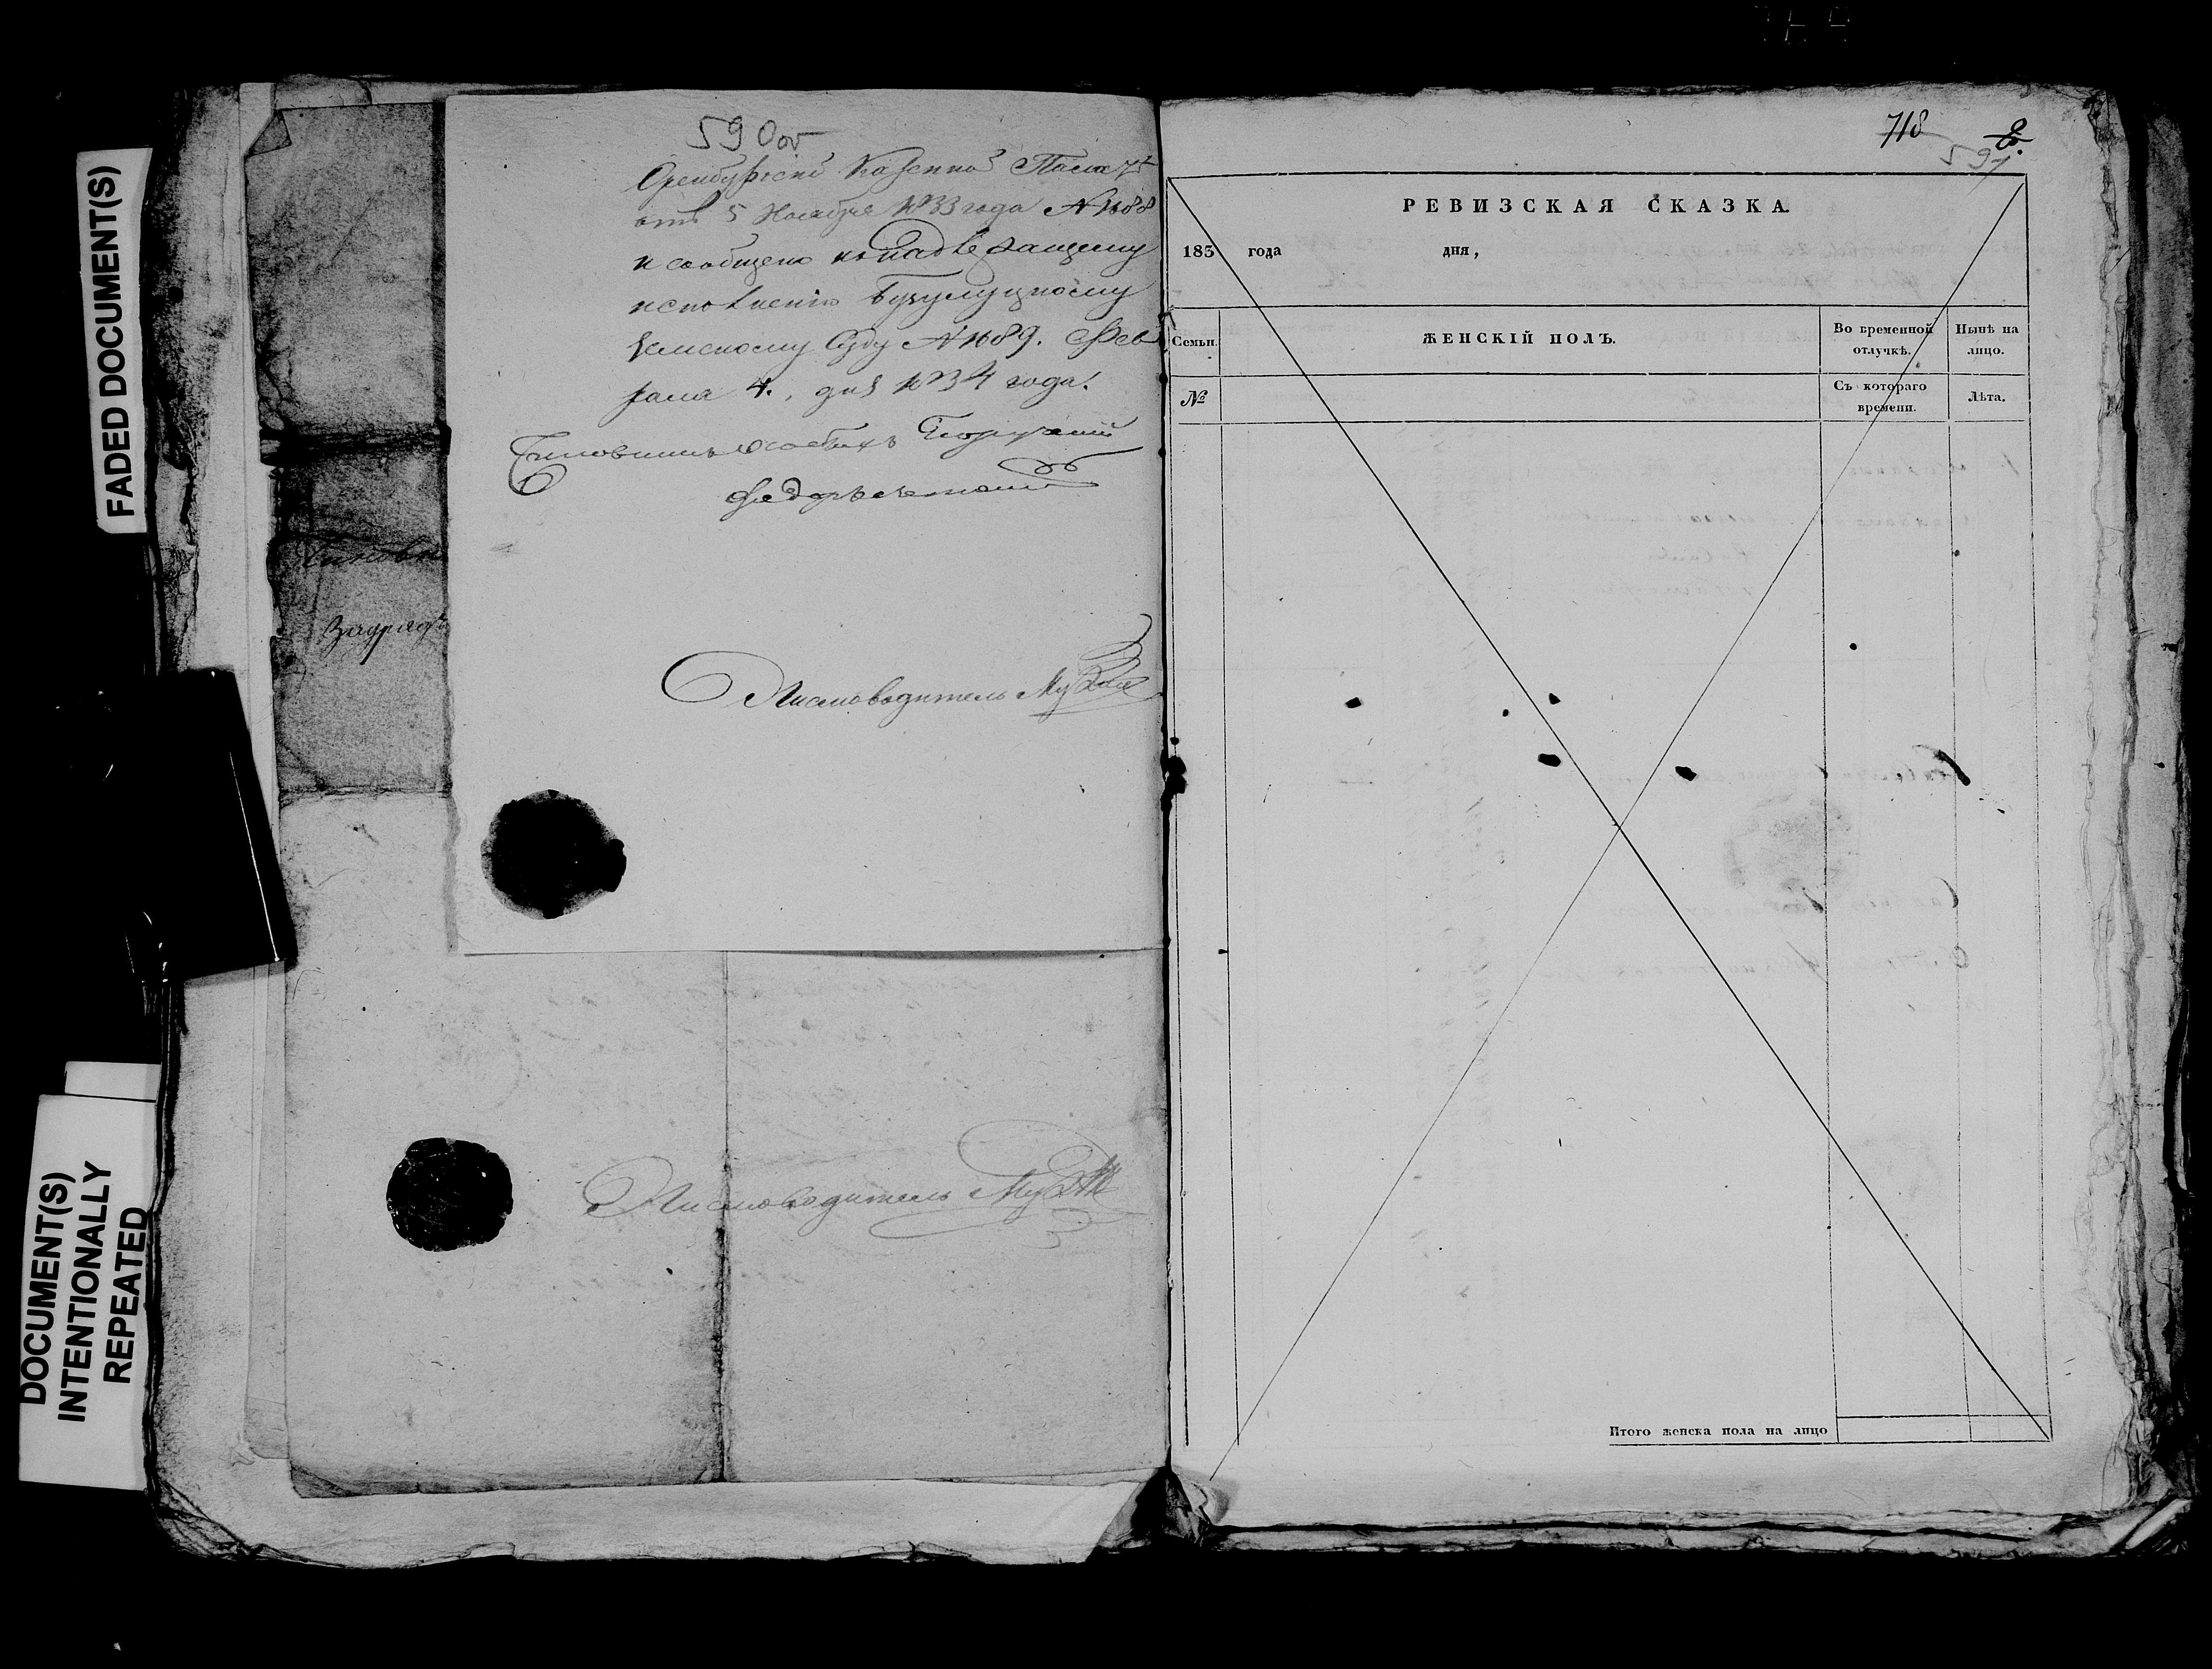 FADED DOCUMENT(S)
DOCUMENT(S)
INTENTIONALLY
REPEATED
590об
Оренбургской Казенной Палат
отъ 5 Ноября 1833 года № 1688
и сообщено къ надлежащему
исполненію Бузулуцкому
Земскому Суду № 1689. Фев
раля 4., дня 1834 года.
Чиновникъ особыхъ Порученій
Письмоводитель
Письмоводитель
718
591
РЕВИЗСКАЯ СКАЗКА.
183 года дня,
Семьи. ЖЕНСКІЙ ПОЛЪ. Во временной отлучкѣ. Нынѣ на лицо.
№ Съ котораго времени. Лѣта.
Итого женска пола на лицо